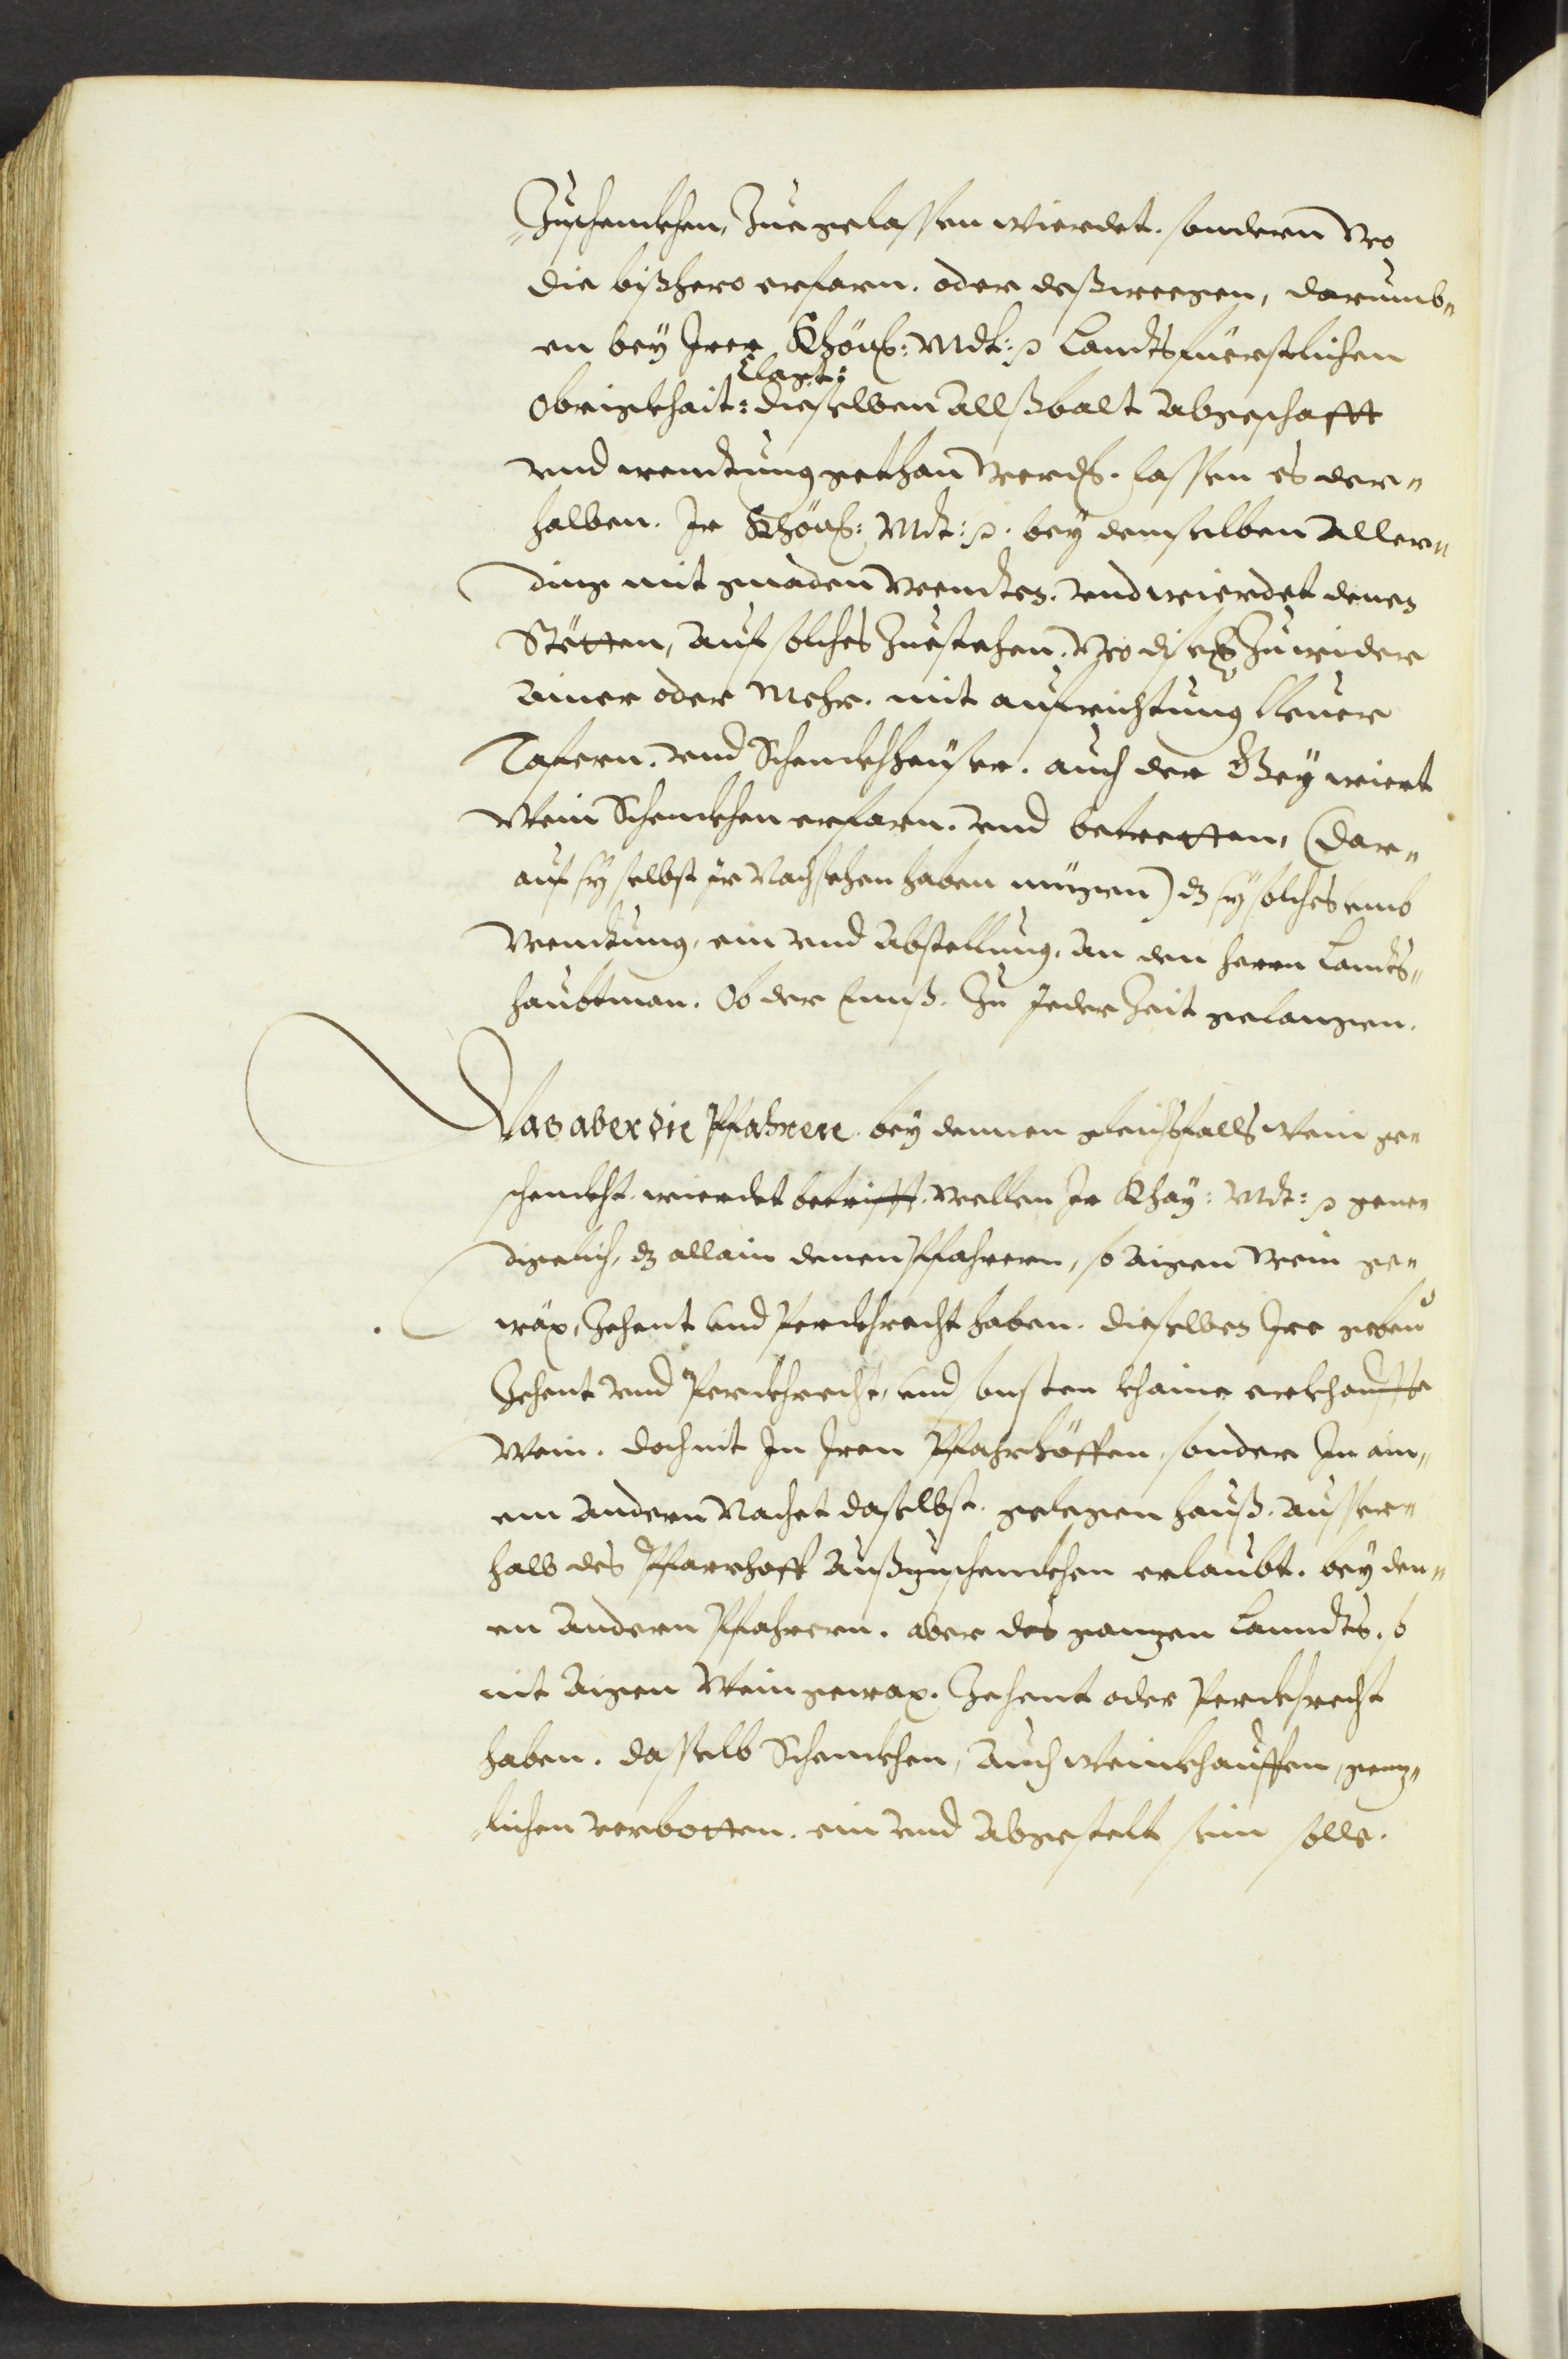 Zuschenckhen, Zuegelassen wierdet. sondern Wo
die bißhero erfarn. oder deßweegen, darumb„
en bey Irer Khönig: Mdt: Landtsfüerstlichen
Clagt:
Obrigkhait: dieselben allßbalt abgeschafft
vnd wendtung gethan word. lassen es der„
halben. Ir Khönig: Mdt: bey demselben aller„
ding mit gnaden wendten. vnd wierdet denen
Stötten, auf solches Zuestehen. Wo Zuwider
ainer oder Mehr. mit aufrichtung Neuer
Tafern. vnd Schenckhheüser. auch der Geywiert
Wein Schenckhen erfarn. vnd betretten, (dar„
auf sy selbst ir Nachsehen haben mügen) dz sy solches umb
Wendtung, ein vnd abstellung. an den herrn Landts„
haubtman. Ob der Ennß. Zu Jeder Zeit gelangen.
Was aber die Pfahrern bey dennen gleichsfalls Wein ge„
schenckht wierdet betrifft. Wellen Ir Khay: Mdt: gene„
digelich, dz allain denen Pfahrern, so aigen Wein ge„
wäx, Zehent vnd Perckhrecht haben. dieselben Ire gebau
Zehent vnd Perckhrecht, vnd sonsten khaine erkhauffte
Wein. doch nit In Iren Pfahrhöffen, sonder In ain„
em andern Nachet daselbst. gelegen hauß. ausser„
halb des Pfarrhoff Außzuschenckhen erlaubt. bey den„
en andern Pfahrern. aber des ganzen Lanndts. so
nit aigen Weingewax. Zehent oder Perckhrecht
haben. dasselb Schenckhen, auch Weinkhauffen, genz„
„lichen verbotten. ein vnd abgestelt sein solle.